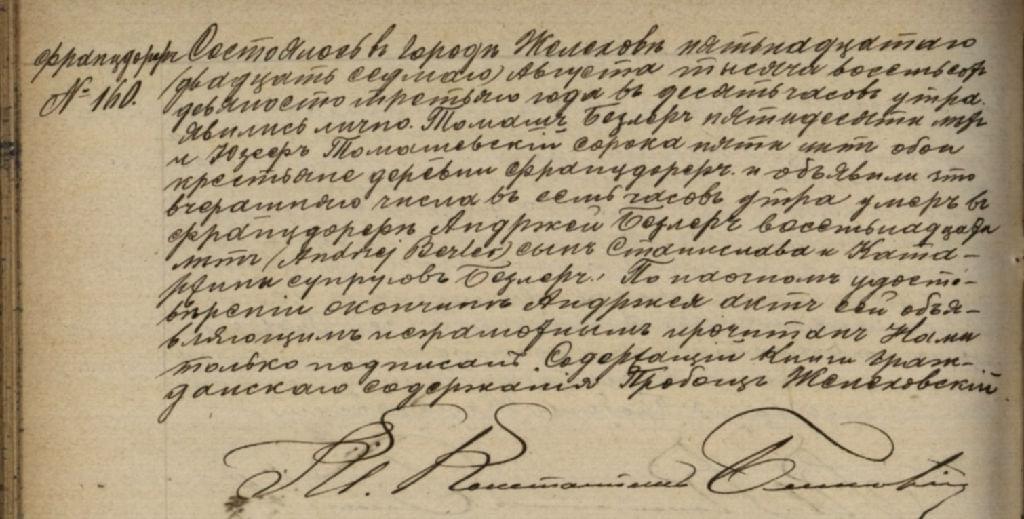 Францдорфъ
№ 160.
Состоялось въ городѣ Желеховѣ пятьнадцатаго
(двадцать седмаго) Августа тысяча восемьсотъ
девяносто третьяго года въ десять часовъ утра.
Явились лично. Томашъ Безлеръ пятидесяти трехъ
и Юзефъ Томашевскій сорока пяти лѣтъ обои
крестьяне деревни Францдорфъ. и объявили что
вчерашняго числа въ семь часовъ утра умеръ въ
Францдорфѣ Андржей Безлеръ восемьнадцать
лѣтъ (Andrej Bezler) сынъ Станислава и Ката-
ржины супруговъ Безлеръ. По наочномъ удосто-
вѣреніи о кончинѣ Андржея актъ сей объя-
вляющимъ неграмотнымъ прочитанъ Нами
только подписанъ. Содержащій Книги Граж-
данскаго содержанія Пробощъ Желеховскій
Кс. Константинъ